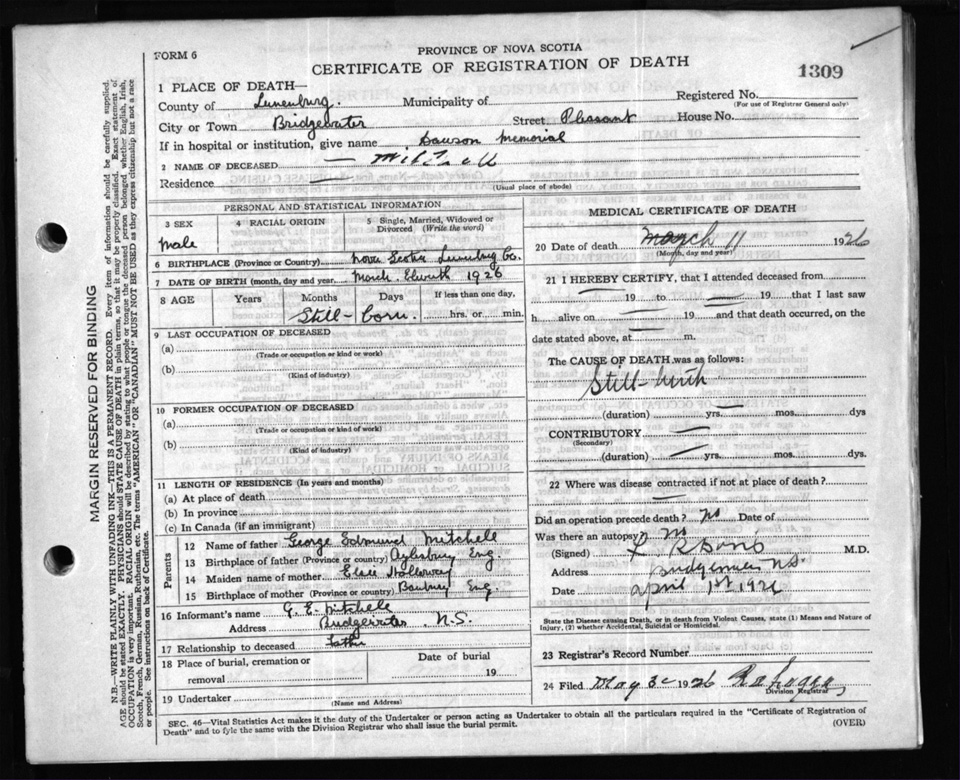 FORM 6
PROVINCE OF NOVA SCOTIA
CERTIFICATE OF REGISTRATION OF DEATH
1309
1 PLACE OF DEATH—
County of Lunenburg. Municipality of Registered No.
(For use of Registrar General only)
City or Town Bridgewater Street Pleasant House No.
If in hospital or institution, give name Dawson Memorial
2 NAME OF DECEASED — Mitchell
Residence
(Usual place of abode)
PERSONAL AND STATISTICAL INFORMATION
3 SEX 4 RACIAL ORIGIN 5 Single, Married, Widowed or Divorced (Write the word)
Male
6 BIRTHPLACE (Province or Country) Nova Scotia Lunenburg Co.
7 DATE OF BIRTH (month, day and year) March 1926
8 AGE Years Months Days If less than one day,
Still-born. hrs. or min.
9 LAST OCCUPATION OF DECEASED
(a)
(Trade or occupation or kind of work)
(b)
(Kind of industry)
10 FORMER OCCUPATION OF DECEASED
(a)
(Trade or occupation or kind of work)
(b)
(Kind of industry)
11 LENGTH OF RESIDENCE (In years and months)
(a) At place of death
(b) In province
(c) In Canada (if an immigrant)
Parents
12 Name of father George Edmund Mitchell
13 Birthplace of father (Province or country) Aylisbury Eng
14 Maiden name of mother Elsie Holloway
15 Birthplace of mother (Province or country) Eng.
16 Informant's name G. E. Mitchell
Address Bridgewater N.S.
17 Relationship to deceased Father
18 Place of burial, cremation or removal Date of burial
19
19 Undertaker
(Name and Address)
MEDICAL CERTIFICATE OF DEATH
20 Date of death March 11 1926
(Month, day and year)
21 I HEREBY CERTIFY, that I attended deceased from
19 to 19 that I last saw
h alive on 19 and that death occurred, on the
date stated above, at m.
The CAUSE OF DEATH was as follows:
Still-birth
(duration) yrs. mos. dys
CONTRIBUTORY
(Secondary)
(duration) yrs. mos. dys.
22 Where was disease contracted if not at place of death?
Did an operation precede death? No Date of
Was there an autopsy? No
(Signed) M.D.
Address Bridgewater N.S.
Date April 1st 1926
State the Disease causing Death, or in death from Violent Causes, state (1) Means and Nature of
Injury, (2) whether Accidental, Suicidal or Homicidal.
23 Registrar's Record Number
24 Filed May 1926
Division Registrar
SEC. 46—Vital Statistics Act makes it the duty of the Undertaker or person acting as Undertaker to obtain all the particulars required in the "Certificate of Registration of
Death" and to fyle the same with the Division Registrar who shall issue the burial permit.
(OVER)
MARGIN RESERVED FOR BINDING
N.B.—WRITE PLAINLY WITH UNFADING INK—THIS IS A PERMANENT RECORD. Every item of information should be carefully supplied.
AGE should be stated EXACTLY. PHYSICIANS should STATE CAUSE OF DEATH in plain terms, so that it may be properly classified. Exact statement of
OCCUPATION is very important. RACIAL ORIGIN will be described by stating to what people or tongue the deceased person belonged whether English, Irish,
Scotch, French, German, Russian, Ruthenian, etc. The terms "AMERICAN" OR "CANADIAN" MUST NOT BE USED as they express citizenship but not a race
or people. See instructions on back of Certificate.